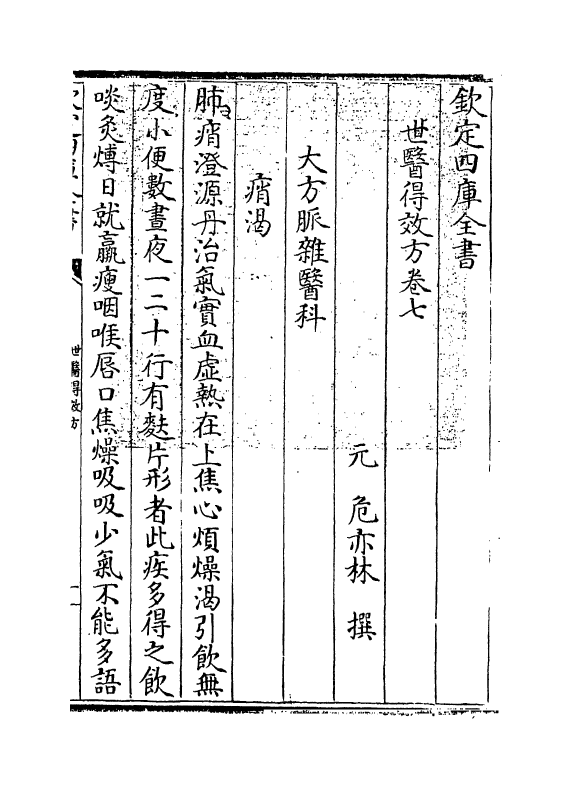 欽定四庫全書
世醫得效方卷七
元 危亦林 撰
大方脈雜醫科
痟渴
肺痟澄源丹治氣實血虛熱在上焦心煩燥渴引飲無
度小便數晝夜一二十行有麩片形者此疾多得之飲
啖炙煿日就羸瘦咽喉唇口焦燥吸吸少氣不能多語
世醫得效方
一